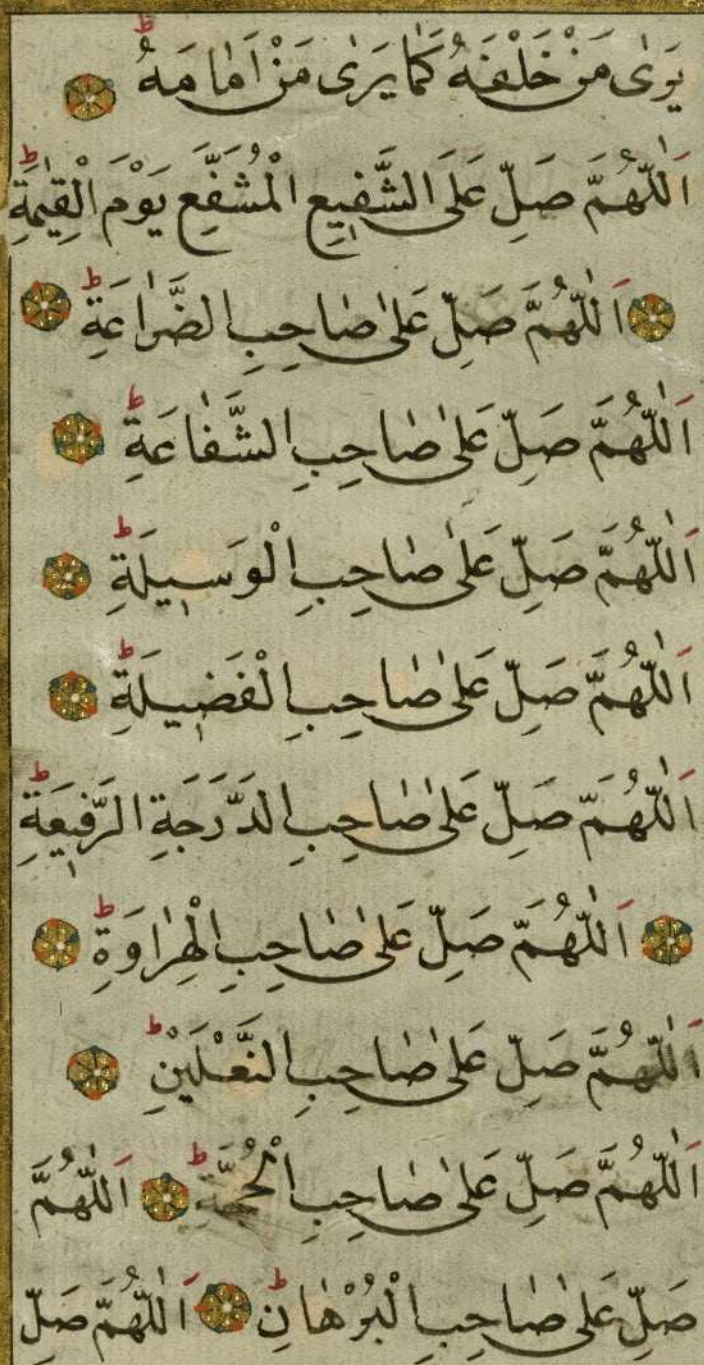 يَرٰى مَنْ خَلْفَهُ كَمَا يَرٰى مَنْ اَمَامَهُ ط
اَللّٰهُمَّ صَلِّ عَلَى الشَّفِيعِ الْمُشَفَّعِ يَوْمَ الْقِيٰمَةِ ط
اَللّٰهُمَّ صَلِّ عَلٰى صَاحِبِ الضَّرَاعَةِ ط
اَللّٰهُمَّ صَلِّ عَلٰى صَاحِبِ الشَّفَاعَةِ ط
اَللّٰهُمَّ صَلِّ عَلٰى صَاحِبِ الْوَسِيلَةِ ط
اَللّٰهُمَّ صَلِّ عَلٰى صَاحِبِ الْفَضِيلَةِ ط
اَللّٰهُمَّ صَلِّ عَلٰى صَاحِبِ الدَّرَجَةِ الرَّفِيعَةِ ط
اَللّٰهُمَّ صَلِّ عَلٰى صَاحِبِ الْهِرَاوَةِ ط
اَللّٰهُمَّ صَلِّ عَلٰى صَاحِبِ النَّعْلَيْنِ ط
اَللّٰهُمَّ صَلِّ عَلٰى صَاحِبِ الْحُجَّةِ ط اَللّٰهُمَّ
صَلِّ عَلٰى صَاحِبِ الْبُرْهَانِ ط اَللّٰهُمَّ صَلِّ